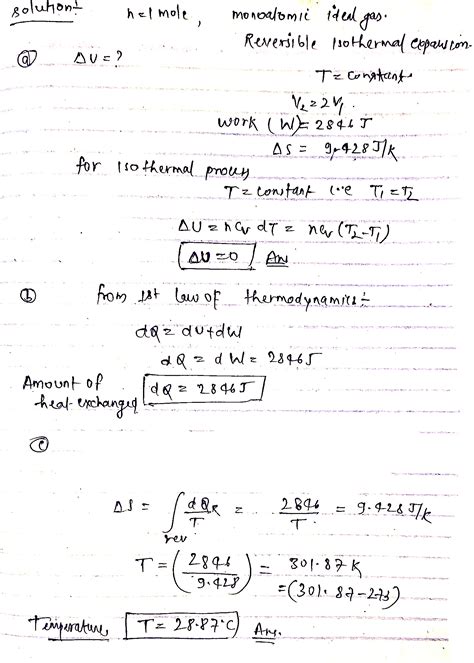 Solution:- n=1 mole, monoatomic ideal gas.
Reversible isothermal expansion.
(a) ΔU = ?
T = constant
V₂ = 2V₁
Work (W) = 2846 J
ΔS = 9.428 J/K
for isothermal process
T = constant i.e T₁ = T₂
ΔU = nCv dT = nCv (T₂-T₁)
ΔU = 0 An
(b) from 1st law of thermodynamics:-
dQ = dU+dW
dQ = dW = 2846J
Amount of
heat-exchanged dQ = 2846J
(c)
ΔS = ∫rev dQR/T = 2846/T = 9.428 J/K
T = (2846/9.428) = 301.87 K
= (301.87-273)
Temperature T = 28.87°C Ans.